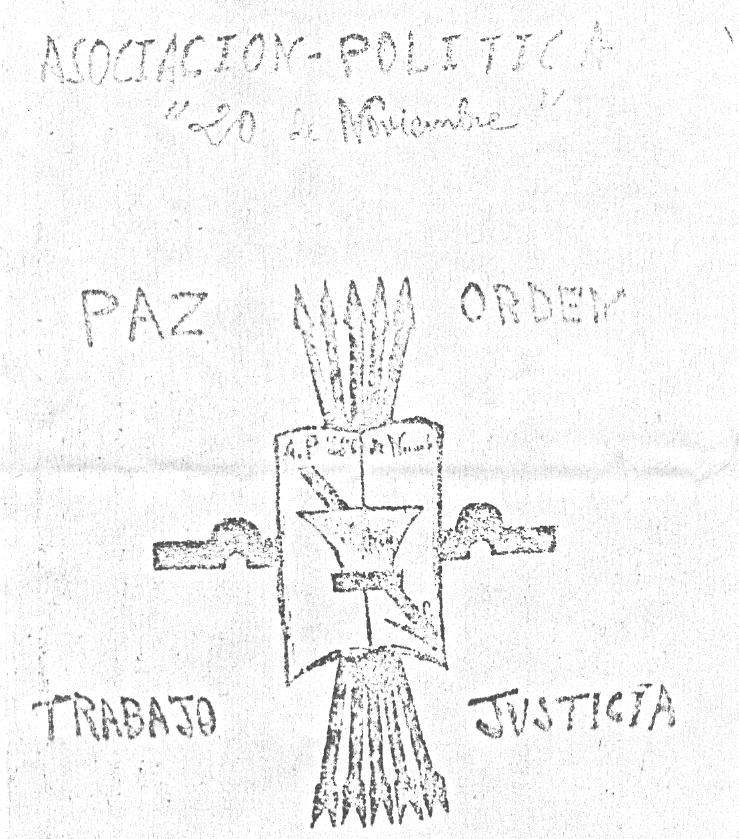 ASOCIACION-POLITICA
"20 de Noviembre"
PAZ
ORDEN
TRABAJO
JUSTICIA